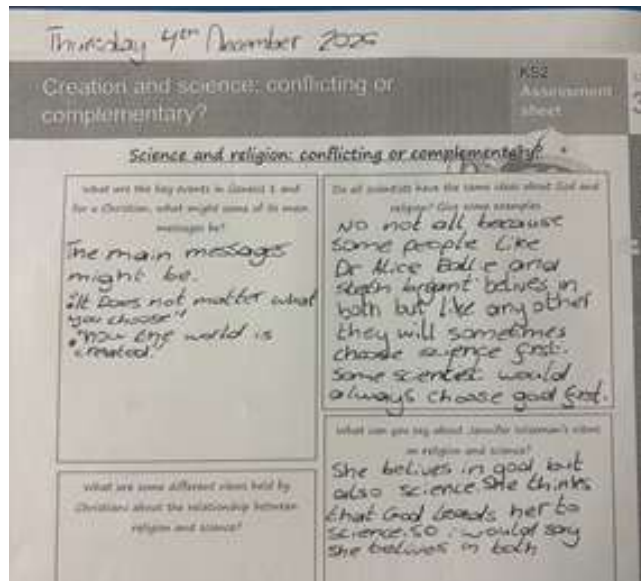 Thursday 4th December 2025
Creation and science: conflicting or
complementary?
KS2
Assessment
sheet
Science and religion: conflicting or complementary?
What are the key events in Genesis 1 and
for a Christian, what might some of its main
messages be?
The main messages
might be.
• "It Does not matter what
you choose"
• "How the world is
created."
Do all scientists have the same ideas about God and
religion? Give some examples
No not all, because
some people like
Dr Alice and
belives in
both but like any other
they will sometimes
choose science first.
Some scientest would
always choose god first.
What can you say about Jennifer Wiseman's views
on religion and science?
She belives in god but
also science. She thinks
that God leads her to
science. so i would say
she belives in both
What are some different views held by
Christians about the relationship between
religion and science?